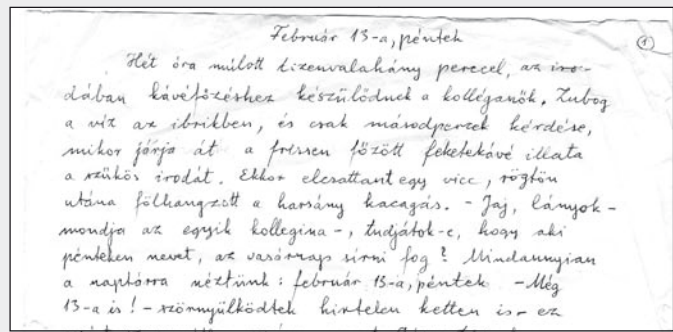 Február 13-a, péntek
1
Hét óra múlott tizenvalahány perccel, az iro-
dában kávéfőzéshez készülődnek a kolléganők. Zubog
a víz az ibrikben, és csak másodpercek kérdése,
mikor járja át a frissen főzött feketekávé illata
a szűkös irodát. Ekkor elcsattant egy vicc, rögtön
utána fölhangzott a harsány kacagás. - Jaj, lányok -
mondja az egyik kollegina -, tudjátok-e, hogy aki
pénteken nevet, az vasárnap sírni fog? Mindannyian
a naptárra néztünk: február 13-a, péntek. - Még
13-a is! - szörnyülködtek hirtelen ketten is - ez